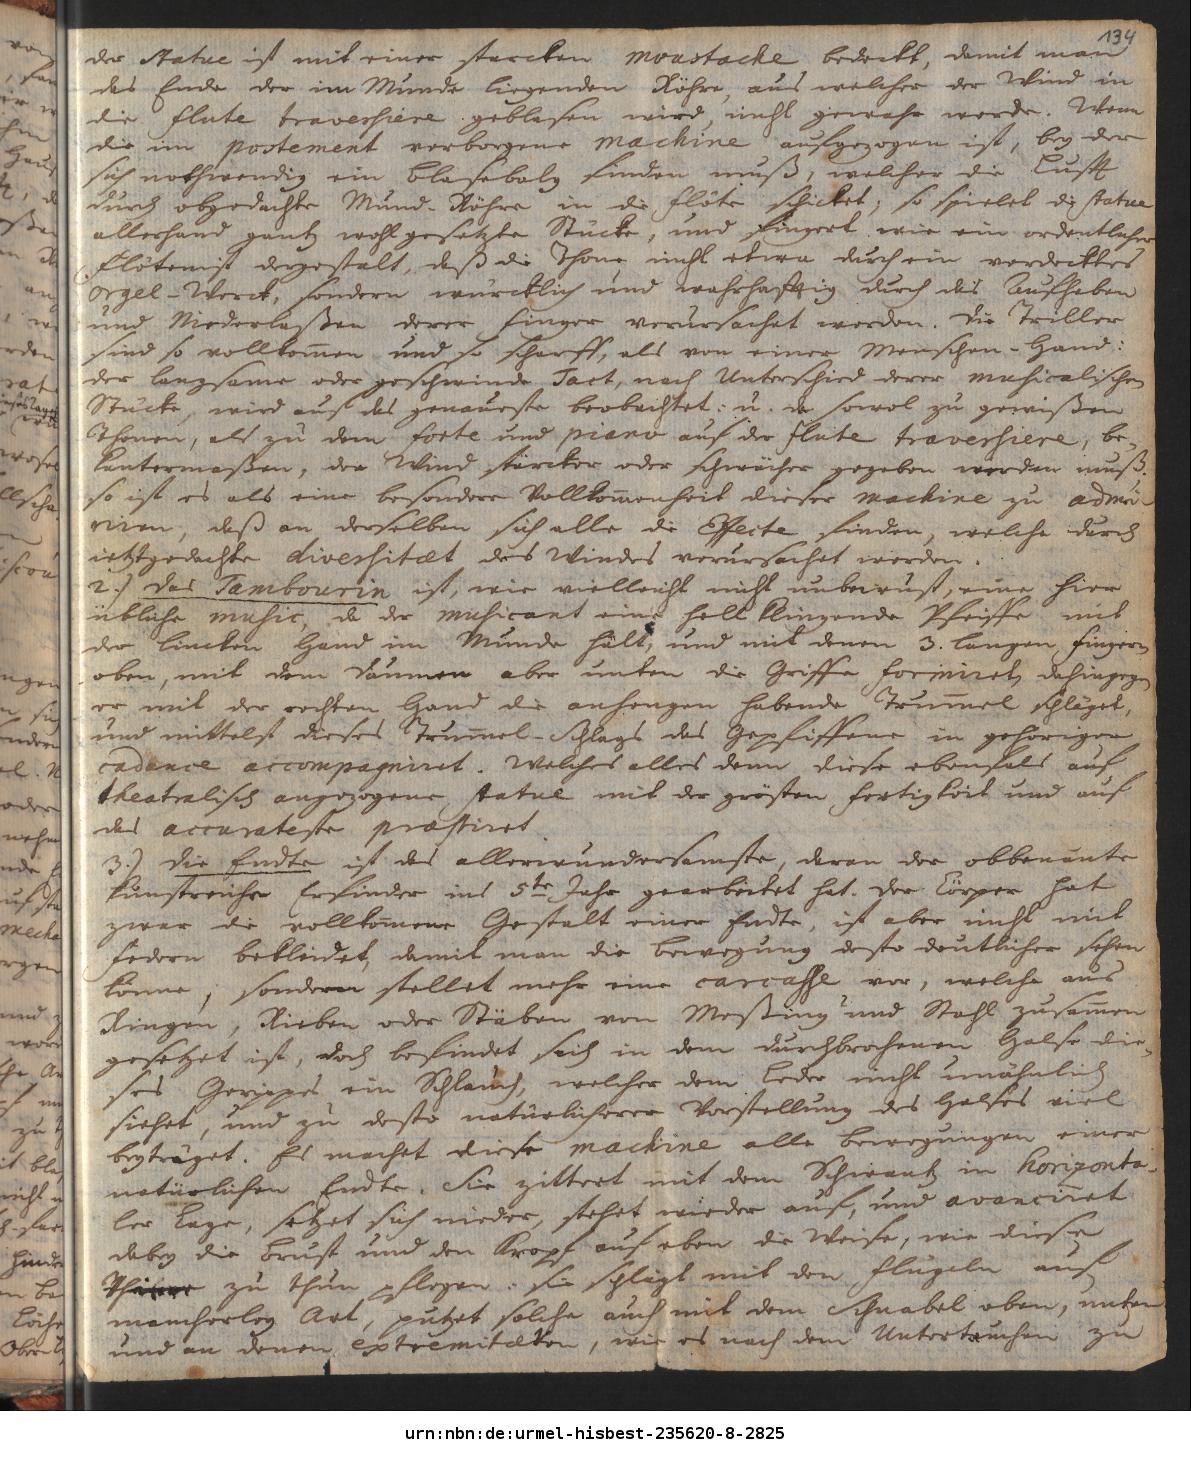 134
der Statue ist mit einer starcken moustache bedeckt, damit man
das Ende der im Munde liegenden Röhre, aus welcher der Wind in
die flute traversiere geblasen wird, nicht gewahr werde. Wenn
die im postement verborgene machine aufgezogen ist, bey der
sich nothwendig ein Blasebalg finden muß, welcher die Lufft
durch obgedachte Mund-Röhre in die Flöte schicket; so spielet die Statue
allerhand gantz wohl gesetzte Stücke, und fingert wie ein ordentlicher
Flötenist dergestalt, daß die Thone nicht etwa durch ein verdecktes
Orgel-Werck, sondern würcklich und wahrhafftig durch das Aufheben
und Niederlaßen derer Finger verursachet werden. Die Triller
sind so vollkom̄en und so scharff, als von einer Menschen-Hand:
der langsame oder geschwinde Tact, nach Unterschied derer musicalischen
Stücke, wird auf das genaueste beobachtet: u. da sowol zu gewißen
Thonen, als zu dem forte und piano auf der flute traversiere, be-
kantermaßen, der Wind stärcker oder schwächer gegeben werden muß:
so ist es als eine besondere Vollkom̄enheit dieser machine zu admi-
riren, daß an derselben sich alle die Effecte finden, welche durch
ietztgedachte diversitæt des Windes verursachet werden.
2.) Das Tambourin ist, wie vielleicht nicht unbewust, eine hier
übliche music, da der musicant eine hell klingende Pfeiffe mit
der lincken Hand im Munde hält, und mit denen 3. langen Fingern
oben, mit dem Daumen aber unten die Griffe formiret, dahingegen
er mit der rechten Hand die anhengen habende Trum̄el schläget,
und mittelst dieses Trum̄el-Schlags das Gepfiffene in gehöriger
cadance accompagniret. Welches alles denn diese ebenfals auf
theatralisch angezogene Statue mit der grösten Fertigkeit und auf
das accurateste præstiret.
3.) Die Endte ist das allerwundersamste, daran der obbenante
kunstreiche Erfinder ins 5te Jahr gearbeitet hat. Der Cörper hat
zwar die vollkom̄ene Gestalt einer Endte, ist aber nicht mit
Federn bekleidet, damit man die Bewegung desto deutlicher sehen
könne, sondern stellet mehr eine carcasse vor, welche aus
Ringen, Rieben oder Stäben von Meßing und Stahl zusam̄en
gesetzet ist, doch befindet sich in dem durchbrochenen Halse die-
ses Gerippes ein Schlauch, welcher dem Leder nicht unähnlich
siehet, und zu desto natürlicherer Vorstellung des Halses viel
beyträget. Es machet diese machine alle Bewegungen einer
natürlichen Endte. Sie zittert mit dem Schwantz in horizonta-
ler Lage, setzet sich nieder, stehet wieder auf, und avanciret
dabey die Brust und den Kropf auf eben die Weise, wie diese
Thiere zu thun pflegen. Sie schlägt mit den Flügeln auf
mancherley Art, putzet solche auch mit dem Schnabel oben, unten
und an denen extremitæten, wie es nach dem Untertauchen zu
urn:nbn:de:urmel-hisbest-235620-8-2825